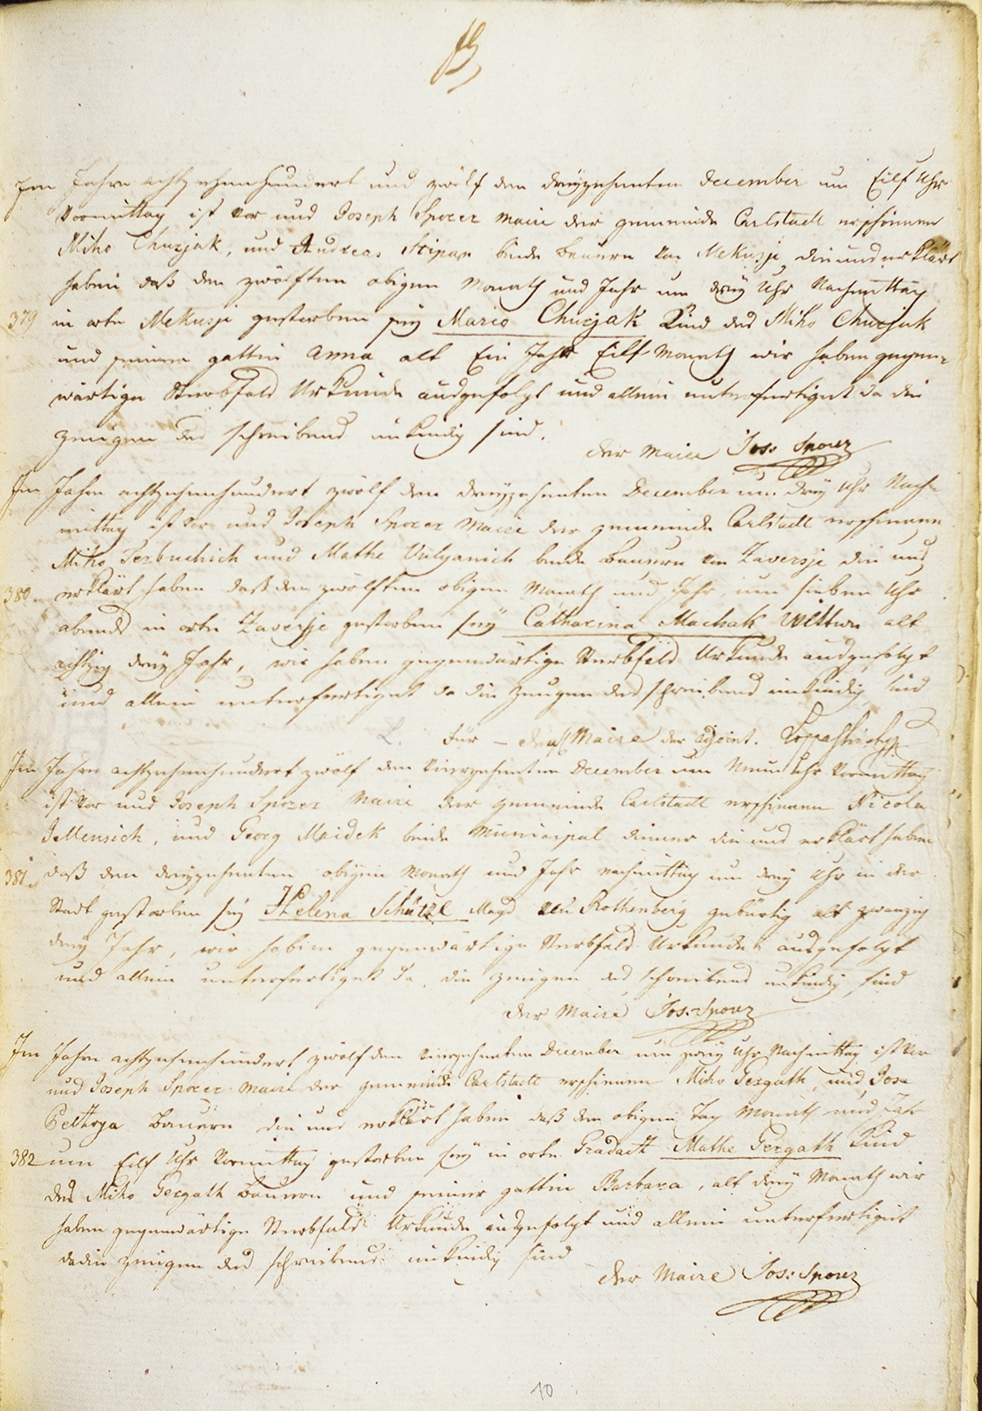 Im Jahre achtzehenhundert und zwölf den dreyzehenten December um Eilf Uhr
Vormittag ist vor uns Joseph Sporer Maire der gemeinde Carlstadt erschienen
Miho Churjak, und Andreas Stipan beide Bauern von Mekusje, die uns erklärt
haben daß den zwölften obigen Monath und Jahr um drey Uhr Nachmittag
379 in orte Mekusje gestorben sey Mario Churjak Kind des Miho Churjak
und seiner gattin Anna alt Ein Jahr Eilf Monath wir haben gegen-
wärtige Sterbfalls Urkunde ausgefolgt und allein unterfertiget da die
zeugen des schreibens unkundig sind.
der Maire Jos: Sporer
Im Jahre achtzehenhundert zwölf den dreyzehenten December um drey Uhr Nach-
mittag ist vor uns Joseph Sporer Maire der gemeinde Carlstadt erschienen
Miho Terbuchich und Mathe Vulyanich beide Bauern von Zaversje die uns
380 erklärt haben daß den zwölften obigen Monath und Jahr, um sieben Uhr
abends in orte Zaversje gestorben sey Catharina Machak Wittwe alt
achtzig drey Jahr, wir haben gegenwärtige Sterbfalls Urkunde ausgefolgt
und allein unterfertiget da die Zeugen des schreibens unkundig sind
Für den Maire der Adjoint.
Im Jahre achtzehenhundert zwölf den vierzehenten December um Neun Uhr Vormittag
ist vor uns Joseph Sporer Maire der gemeinde Carlstadt erschienen Nicola
Jellensich, und Georg Maidek beide Municipal diener die uns erklärt haben
381 daß den dreyzehenten obigen Monath und Jahr nachmittag um drey Uhr in der
Stadt gestorben sey Helena Schützl Magd zu Rothenberg gebürtig alt zwanzig
drey Jahr, wir haben gegenwärtige Sterbfalls Urkunde ausgefolgt
und allein unterfertiget da, die zeugen des schreibens unkundig sind
der Maire Jos: Sporer
Im Jahre achtzehenhundert zwölf den vierzehenten December um zwey Uhr Nachmittag ist vor
uns Joseph Sporer Maire der gemeinde Carlstadt erschienen Miho Gergath, und Josa
Bauern die uns erklärt haben daß den obigen Tag Monath und Jahr
382 um Eilf Uhr Vormittag gestorben sey in orte Gradatt Mathe Gergath Kind
des Miho Gergath Bauern und seiner gattin Barbara, alt drey Monath wir
haben gegenwärtige Sterbfalls Urkunde ausgefolgt und allein unterfertiget
da die zeugen des schreibens unkundig sind
der Maire Jos: Sporer
10